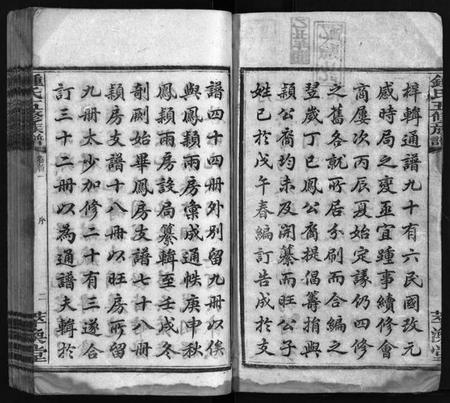 鍾氏五修族譜
梓輯通譜九十有六民國改元
感時局之變亟宜踵事續修會
商屢次丙辰夏始定議仍四修
之舊各就所居分刷而合編之
翌歲丁巳鳳公裔提倡籌捐與
頴公裔均未及開纂而旺公子
姓已於戊午春編訂告成於支
譜四十四冊外別留九冊以俟
與鳳頴兩房彙成通帙庚申秋
鳳頴兩房設局纂輯至壬戌冬
剞劂始畢鳳房支譜七十八冊
頴房支譜十八冊以旺房所留
九冊太少加修二十有三遂合
訂三十二冊以為通譜夫輯於
鍾氏五修族譜
序
二